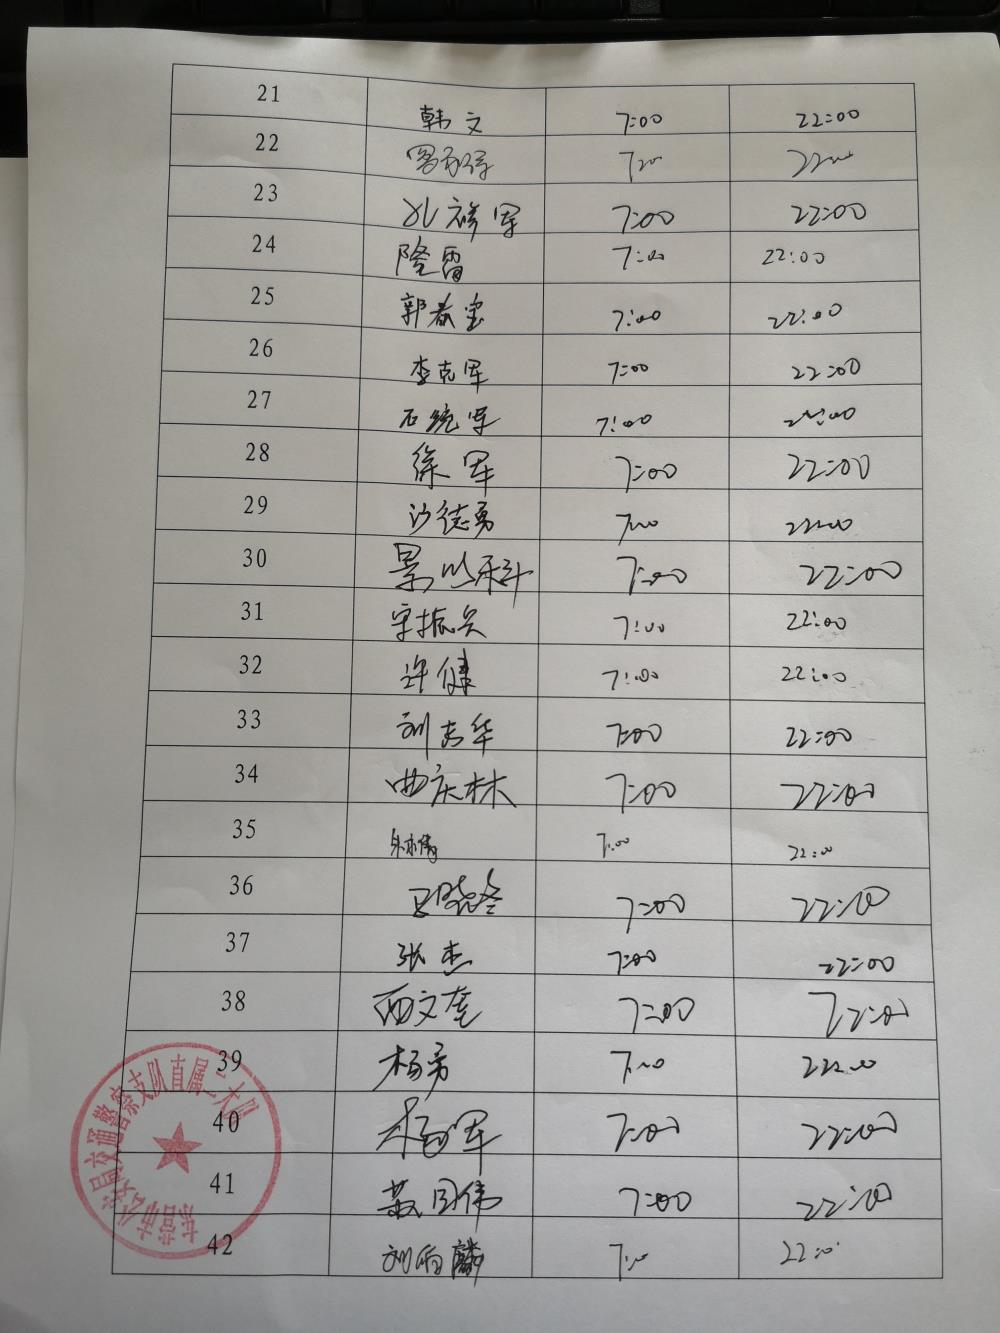 21 韩文 7:00 22:00
22 7:00 22:00
23 孔祥军 7:00 22:00
24 隆雷 7:00 22:00
25 郭春宝 7:00 22:00
26 李克军 7:00 22:00
27 石统军 7:00 22:00
28 徐军 7:00 22:00
29 沙德勇 7:00 22:00
30 7:00 22:00
31 宋振兴 7:00 22:00
32 许健 7:00 22:00
33 刘志华 7:00 22:00
34 曲庆林 7:00 22:00
35 7:00 22:00
36 7:00 22:00
37 张杰 7:00 22:00
38 西文奎 7:00 22:00
39 杨勇 7:00 22:00
40 7:00 22:00
41 7:00 22:00
42 7:00 22:00
东营市公安局交通警察支队直属二大队